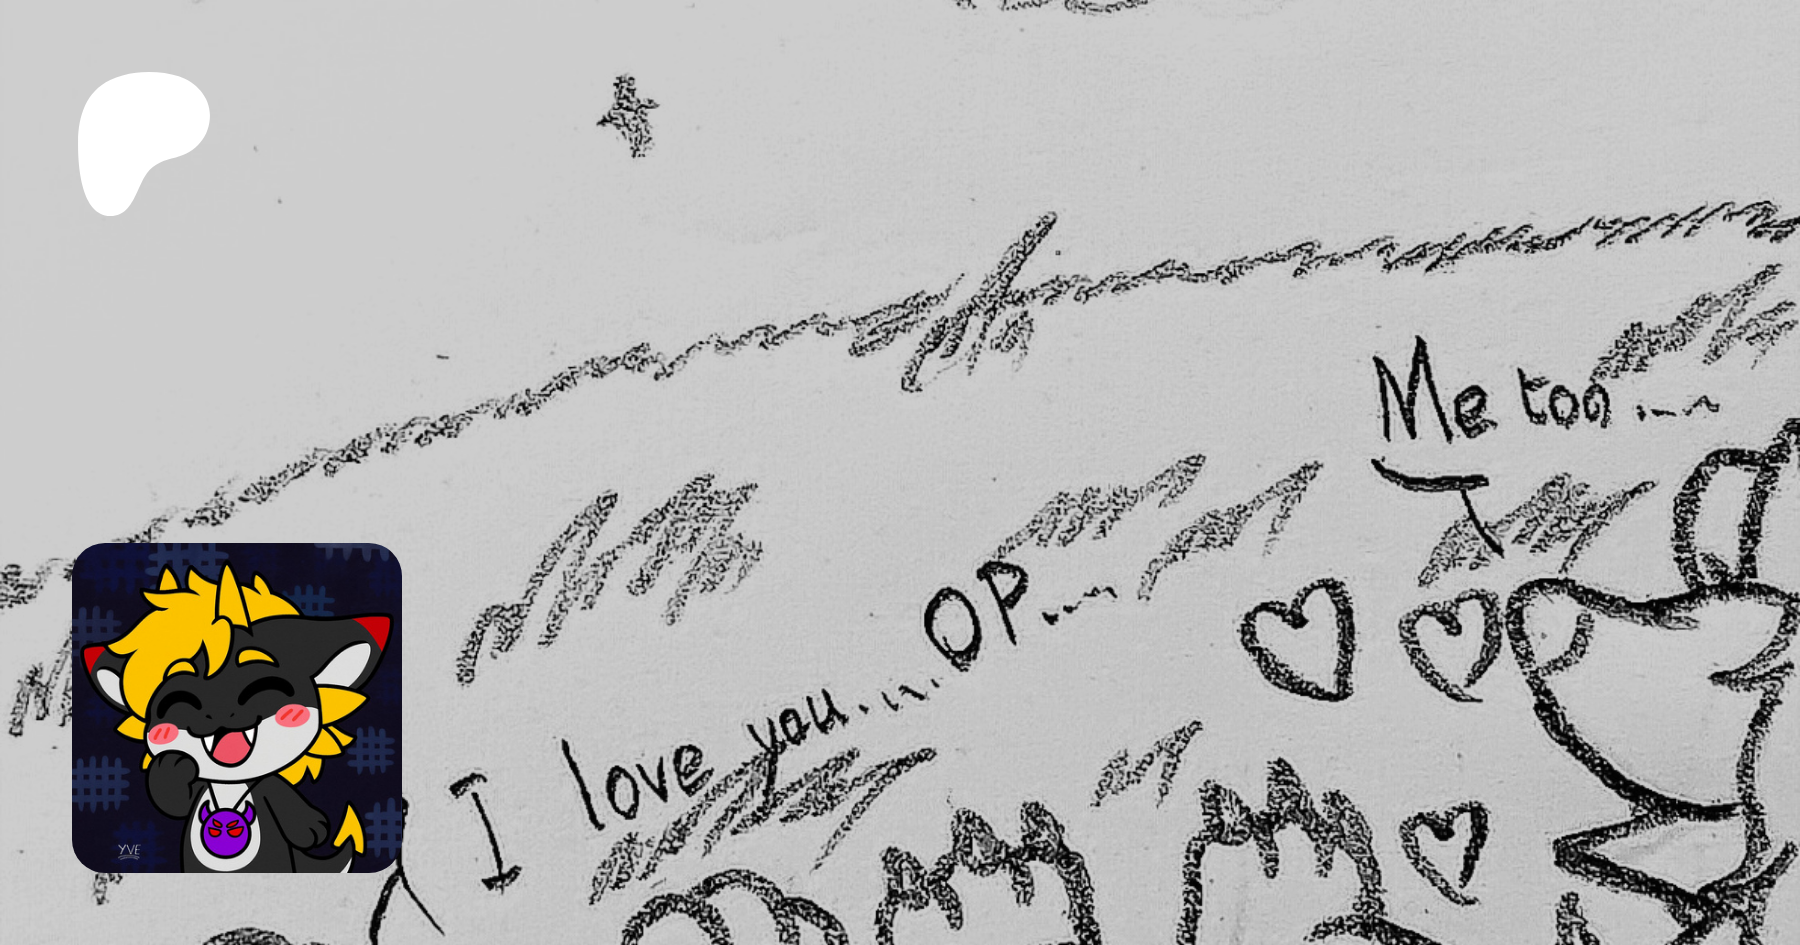 Me too...
I love you... OP...
YVE